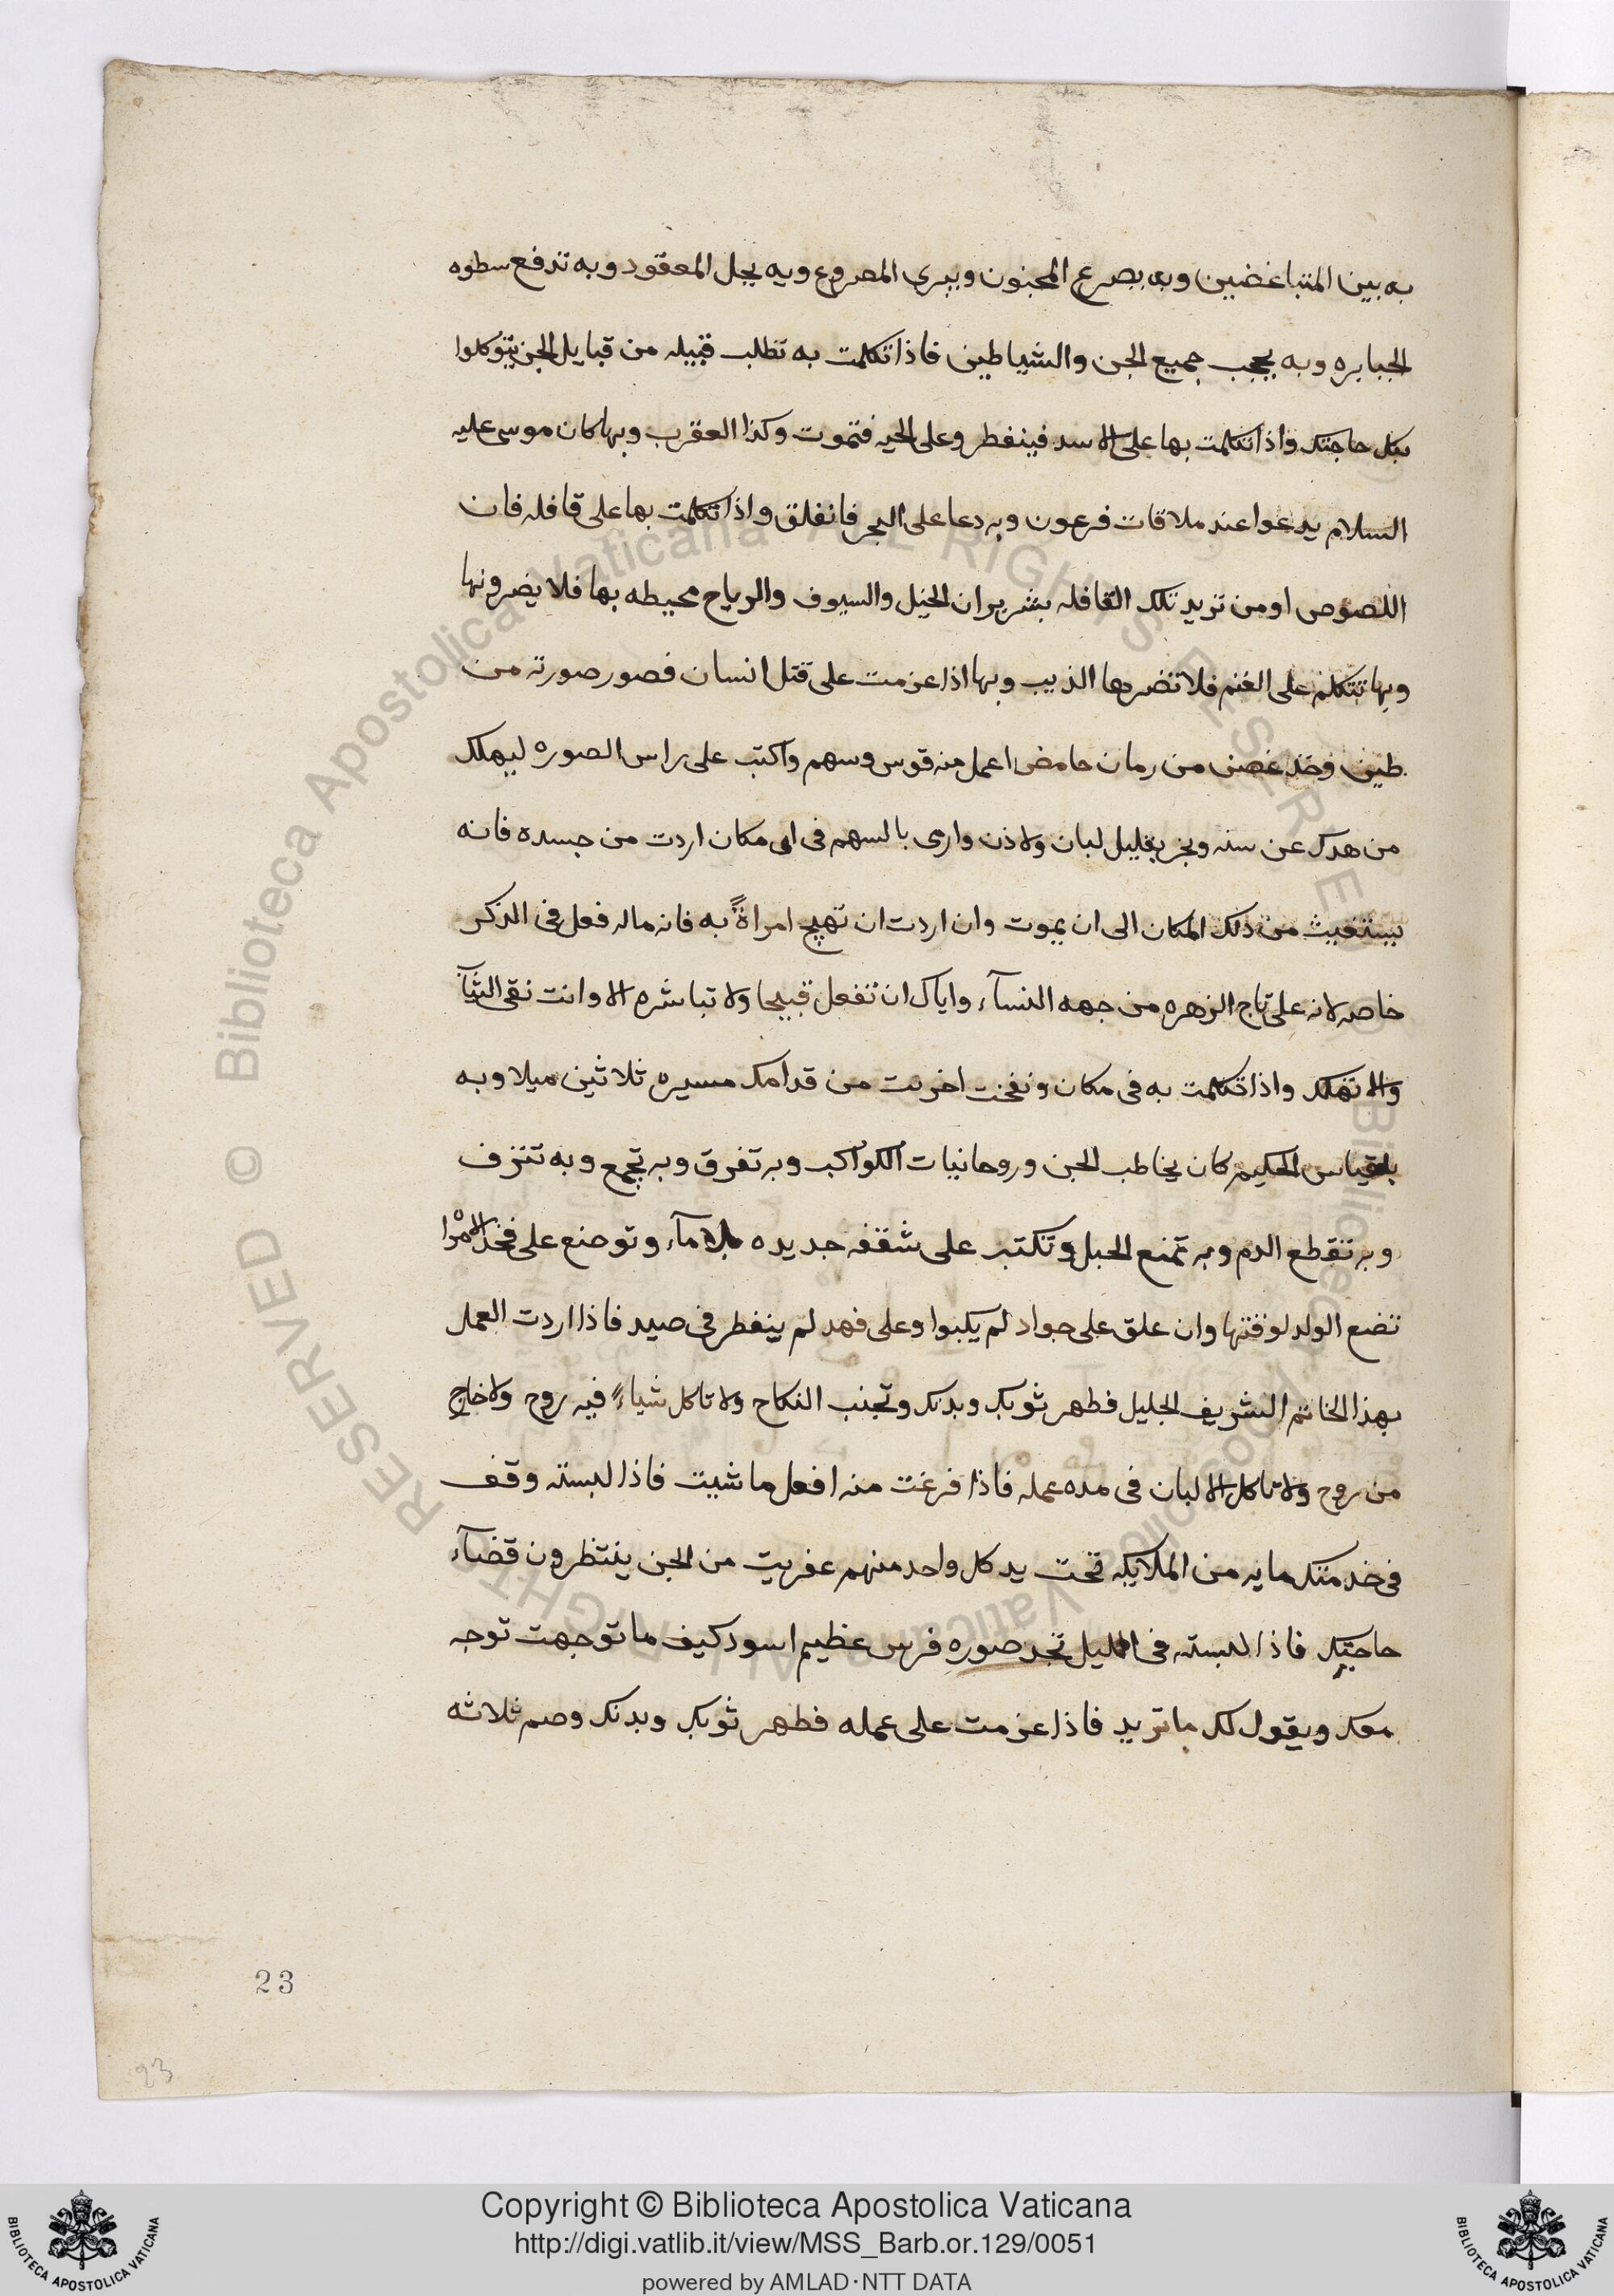 به بين المتباغضين وبه يصرع المجنون ويبرى المصروع وبه يحل المعقود وبه تدفع سطوه
الجبابره وبه يجيب جميع الجن والشياطين فاذا تكلمت به تطلب قبيله من قبايل الجن يتوكلوا
بكل حاجتك واذا تكلمت بها على الاسد فينفطر وعلى الحيه فتموت وكذا العقرب وبها كان موسى عليه
السلام يدعوا عند ملاقات فرعون وبه دعا على البحر فانفلق واذا تكلمت بها على قافله فان
اللصوص او من تريد تلك القافله بشر يروان الخيل والسيوف والرياح محيطه بها فلا يضرونها
وبها تتكلم على الغنم فلا تضرها الذيب وبها اذا عزمت على قتل انسان فصور صورته من
طين وخذ غصن من رمان حامض اعمل منه قوس وسهم واكتب على راس الصوره ليهلك
من هدك عن سنه وبخر بقليل لبان ولاذن وارمى بالسهم فى اى مكان اردت من جسده فانه
يستغيث من ذلك المكان الى ان يموت وان اردت ان تهيج امراةً به فانه ماله فعل فى الذكر
خاصه لانه على تاج الزهره من جهه النسآء واياك ان تفعل قبيحا ولا تباشره الا وانت نقى الثيا
والا تهلك واذا تكلمت به فى مكان ونفخت اخربت من قدامك مسيره ثلاثين ميلا وبه
بلقياس الحكيم كان يخاطب الجن وروحانيات الكواكب وبه تفرق وبه تجمع وبه تنزف
وبه تقطع الدم وبه تمنع الحبل وتكتب على شقفه جديده بلا مآء وتوضع على فخذ الامرا
تضع الولد لوقتها وان علق على جواد لم يكبوا وعلى فهد لم ينفطر فى صيد فاذا اردت العمل
بهذا الخاتم الشريف الجليل فطهر ثوبك وبدنك وتجنب النكاح ولا تاكل شياءً فيه روح ولا خارج
من روح ولا تاكل الالبان فى مده عمله فاذا فرغت منه افعل ما شيت فاذا لبسته وقف
فى خدمتك مايه من الملايكه تحت يد كل واحد منهم عفريت من الجن ينتظرون قضآء
حاجتك فاذا لبسته فى الليل تجد صوره فرس عظيم اسود كيف ما توجهت توجه
معك ويقول لك ما تريد فاذا عزمت على عمله فطهر ثوبك وبدنك وصم ثلاثه
23
23
© Biblioteca Apostolica Vaticana ALL RIGHTS RESERVED
Copyright © Biblioteca Apostolica Vaticana
http://digi.vatlib.it/view/MSS_Barb.or.129/0051
powered by AMLAD·NTT DATA
BIBLIOTECA APOSTOLICA VATICANA
BIBLIOTECA APOSTOLICA VATICANA